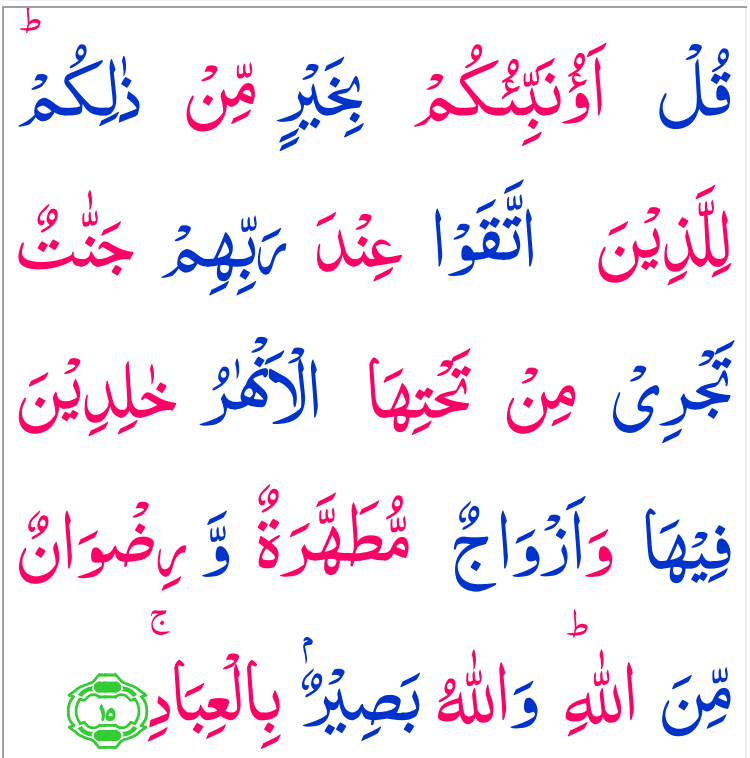 قُلْ اَؤُنَبِّئُكُمْ بِخَيْرٍ مِّنْ ذٰلِكُمْ ؕ
لِلَّذِيْنَ اتَّقَوْا عِنْدَ رَبِّهِمْ جَنّٰتٌ
تَجْرِیْ مِنْ تَحْتِهَا الْاَنْهٰرُ خٰلِدِيْنَ
فِيْهَا وَاَزْوَاجٌ مُّطَهَّرَةٌ وَّ رِضْوَانٌ
مِّنَ اللّٰهِ ؕ وَاللّٰهُ بَصِيْرٌۢ بِالْعِبَادِ ۚ ۝۱۵